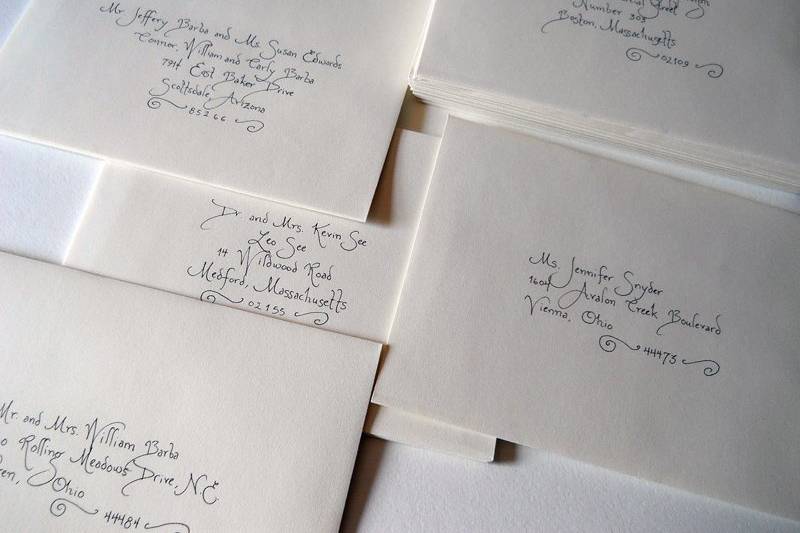 Mr. Jeffery Barba and Ms. Susan Edwards
Connor, William and Carly Barba
7914 East Baker Drive
Scottsdale, Arizona
85266
Number 303
Boston, Massachusetts
02109
Dr. and Mrs. Kevin See
Leo See
14 Wildwood Road
Medford, Massachusetts
02155
Ms. Jennifer Snyder
1604 Avalon Creek Boulevard
Vienna, Ohio
44473
Mr. and Mrs. William Barba
Rolling Meadows Drive, N.E
Ohio
44484